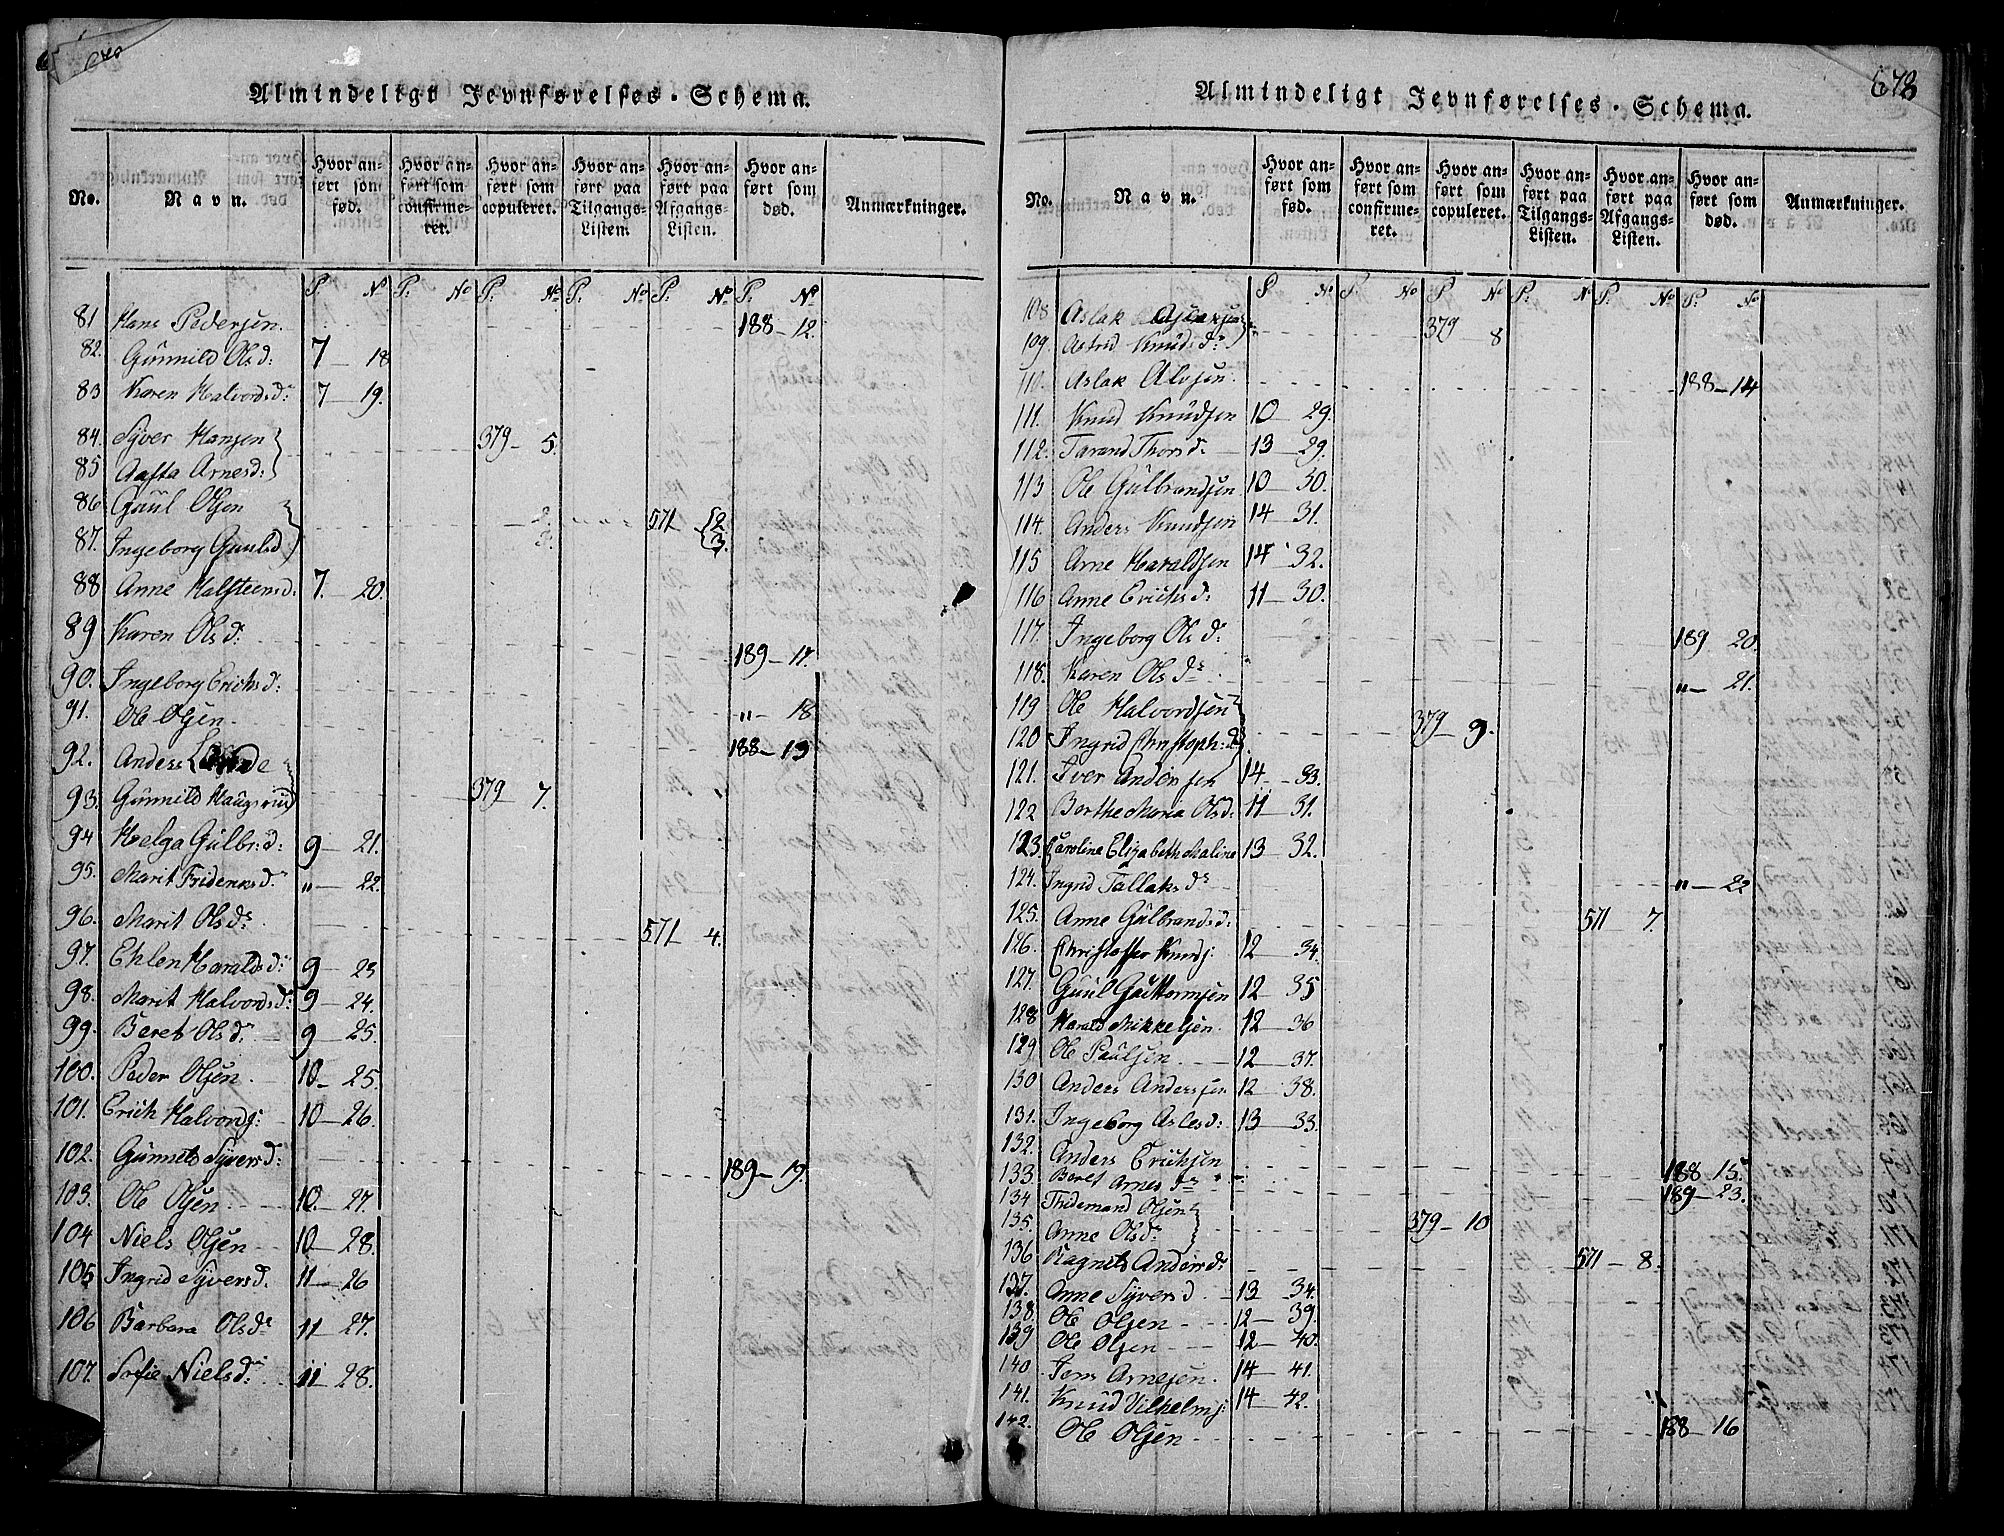 Almindeligt Jevnførelses-Schema.
No.
Navn.
Hvor anført som fød.
Hvor anført som confirmeret.
Hvor anført som copuleret.
Hvor anført paa Tilgangs-Listen.
Hvor anført paa Afgangs-Listen.
Hvor anført som død.
Anmærkninger.
P. No P. No P. No P. No P. No P. No
81 Hans Pedersen. 188 - 12.
82. Gunnild Olsd: 7 - 18
83 Karen Halvordsd: 7 - 19.
84. Syver Hansen 379 - 5.
85 Aasta Arnesd:
86 Guul Olsen 2. 571 2
87. Ingeborg Guulsd 3. 3.
88 Anne Halsteensd: 7. - 20.
89 Karen Olsd: 189 - 17.
90. Ingeborg Erichsd:
91. Ole Olsen " - 18
92. Anders 188 - 13
93. Gunnild Haugsrud 379 - 7.
94 Helga Gulbrd: 9 - 21.
95. Marit Fridensd. " - 22.
96. Marit Olsd: 571 - 4.
97. Ehlen Haraldsd: 9 - 23
98. Marit Halvordsd: 9 - 24.
99. Beret Olsd: 9 - 25.
100. Peder Olsen 10 - 25.
101. Erich Halvords: 10 - 26.
102. Gunnild Syversd: 189 - 19.
103. Ole Olsen 10. - 27.
104 Niels Olsen 10 - 28.
105 Ingrid Syversd. 11 - 26
106 Barbara Olsd: 11 - 27.
107. Sofie Nielsd: 11 - 28.
Almindeligt Jevnførelses-Schema.
678
No.
Navn.
Hvor anført som fød.
Hvor anført som confirmeret.
Hvor anført som copuleret.
Hvor anført paa Tilgangs-Listen.
Hvor anført paa Afgangs-Listen.
Hvor anført som død.
Anmærkninger.
P No P. No P No P. No P. No P. No
108 Aslak 379 8
109. Astrid Knudsd:
110. Aslak Alvsen. 188 - 14
111. Knud Knudsen 10 - 29.
112. Tarand Thorsd. 13 - 29.
113 Ole Gulbrandsen 10 - 30.
114. Anders Knudsen 14 - 31.
115 Arne Haraldsen 14 - 32.
116 Anne Erichsd: 11 - 30.
117. Ingeborg Olsd: 189 20.
118. Karen Olsd: " - 21.
119 Ole Halvordsen 379 - 9.
120 Ingrid Christoph:d:
121. Iver Andersen 14 - 33.
122 Berthe Maria Olsd: 11 - 31.
123. Carolina Elizabeth Malina 13 - 32.
124. Ingrid Tallaksd: " - 22
125. Anne Gulbrandsd: 571 7.
126. Christoffer Knuds: 12 - 34.
127. Guul Guttormsen 12 - 35
128 Harald Mikkelsen. 12 - 36
129 Ole Paulsen 12 - 37.
130 Anders Anderssen 12 - 38.
131. Ingeborg Aslesd: 13 - 33.
132. Anders Erichsen 188 15.
133. Beret Arnesd: 189 - 23.
134 Thidemand Olsen 379 - 10
135. Anne Olsd:
136 Ragnild Andersd: 571 - 8.
137. Anne Syversd 13 - 34.
138. Ole Olsen 12 - 39.
139 Ole Olsen 12 - 40.
140 Jens Arnesen. 14 - 41.
141. Knud Vilhelms: 14 - 42.
142. Ole Olsen 188 - 16